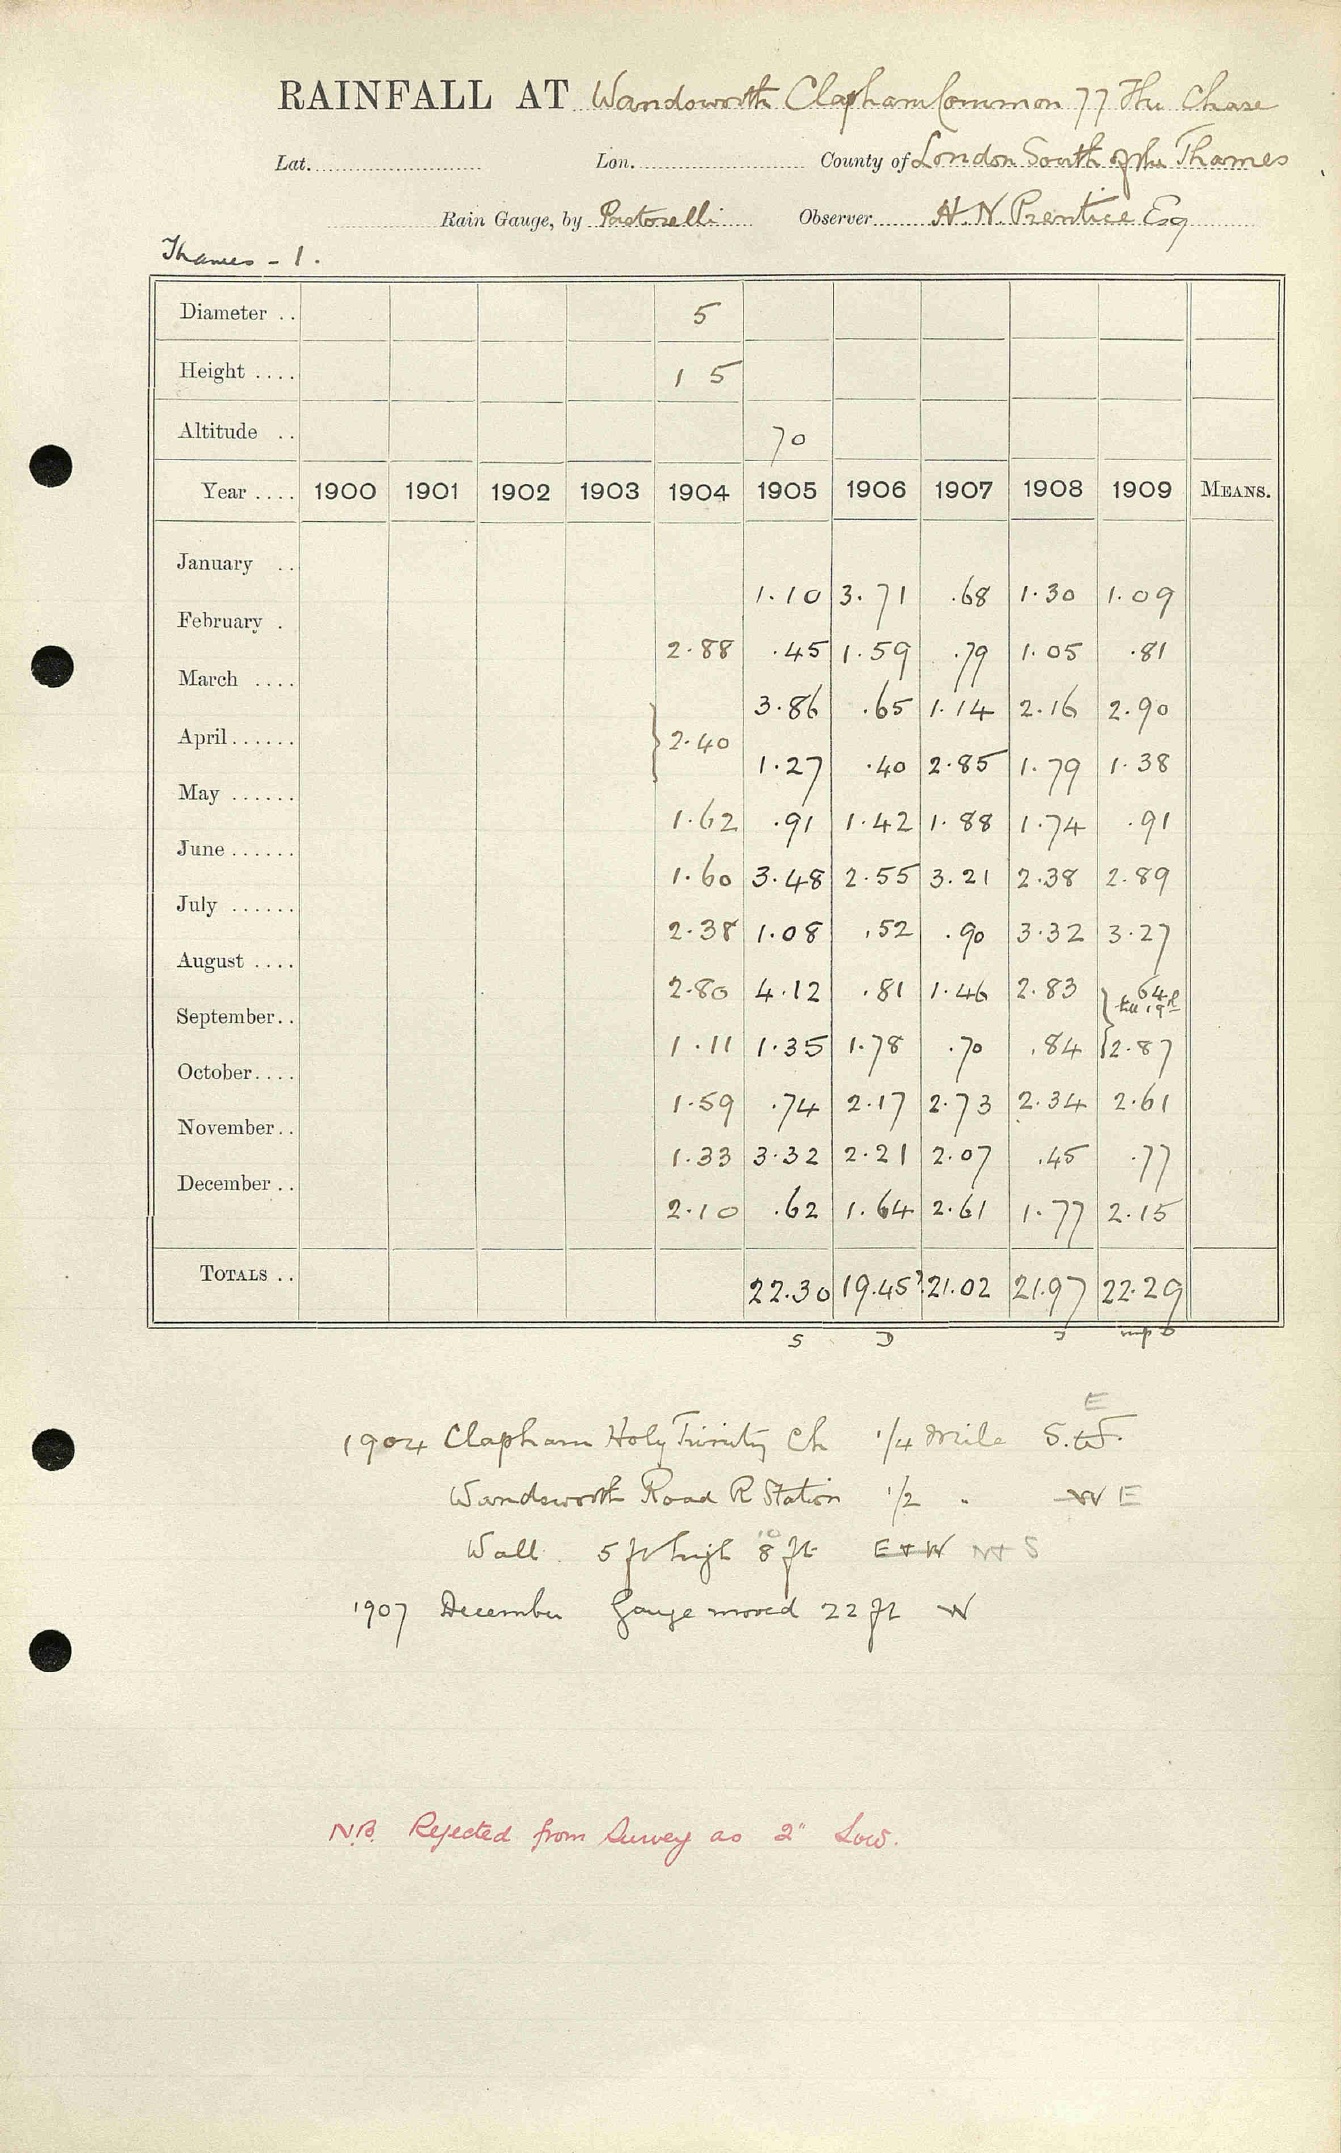 RAINFALL AT Wandsworth Clapham Common 77 The Chase
Lat. Lon. County of London South of the Thames
Rain Gauge, by Pastorelli Observer H. N. Prentice Esq
Thames - 1.
Diameter .. 5
Height .... 1 5
Altitude .. 70
Year .... 1900 1901 1902 1903 1904 1905 1906 1907 1908 1909 MEANS.
January .. 1.10 3.71 .68 1.30 1.09
February . 2.88 .45 1.59 .79 1.05 .81
March .... 3.86 .65 1.14 2.16 2.90
April...... } 2.40 1.27 .40 2.85 1.79 1.38
May ...... 1.62 .91 1.42 1.88 1.74 .91
June ...... 1.60 3.48 2.55 3.21 2.38 2.89
July ...... 2.38 1.08 .52 .90 3.32 3.27
August .... 2.80 4.12 .81 1.46 2.83 } .64 till 19th
September.. 1.11 1.35 1.78 .70 .84 { 2.87
October.... 1.59 .74 2.17 2.73 2.34 2.61
November.. 1.33 3.32 2.21 2.07 .45 .77
December .. 2.10 .62 1.64 2.61 1.77 2.15
TOTALS .. 22.30 19.45? 21.02 21.97 22.29
S D
1904 Clapham Holy Trinity Ch 1/4 Mile S. E
Wandsworth Road R Station 1/2 " W E
Wall 5 ft high 8 10 ft E + W N + S
1907 December Gauge moved 22 ft W
N.B. Rejected from Survey as 2" Low.